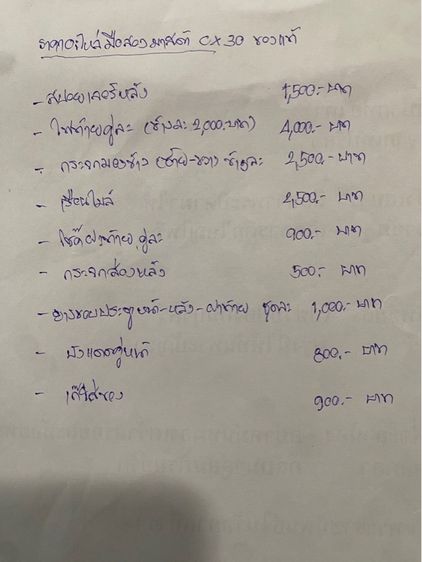 ราคาอะไหล่มือสองมาสด้า CX30 ของแท้
- สปอยเลอร์หลัง 1,500.- บาท
- ไฟท้ายคู่ละ (ข้างละ 2,000.บาท) 4,000.- บาท
- กระจกมองข้าง (ซ้าย-ขวา) ข้างละ 2,500.- บาท
- เรือนไมล์ 2,500.- บาท
- โช๊คฝาท้าย คู่ละ 900.- บาท
- กระจกส่องหลัง 500.- บาท
- ยางขอบประตูหน้า-หลัง-ฝาท้าย ชุดละ 1,000.- บาท
- บังแดดคู่หน้า 800.- บาท
- ใส่ของ 900.- บาท